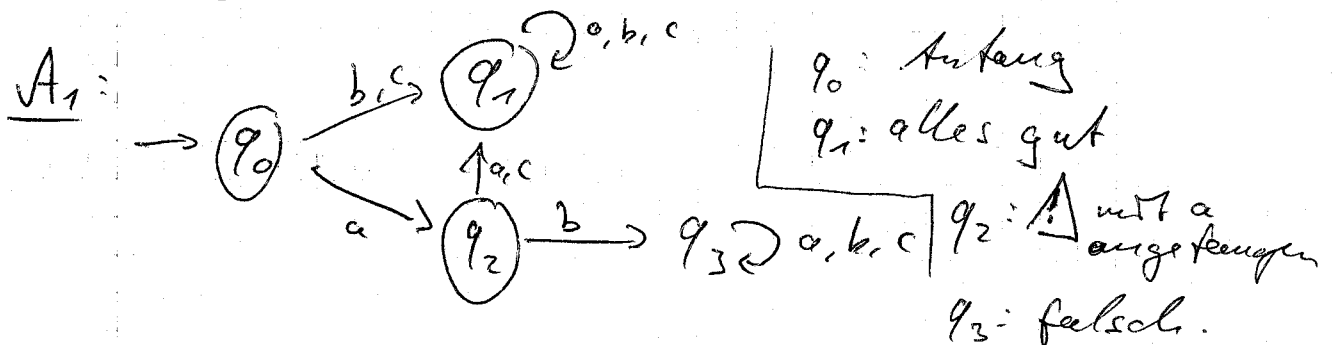 A₁:
q₀
b, c
q₁
a, b, c
a
q₂
a, c
b
q₃
a, b, c
q₀: Anfang
q₁: alles gut
q₂: ! mit a
angefangen
q₃: falsch.